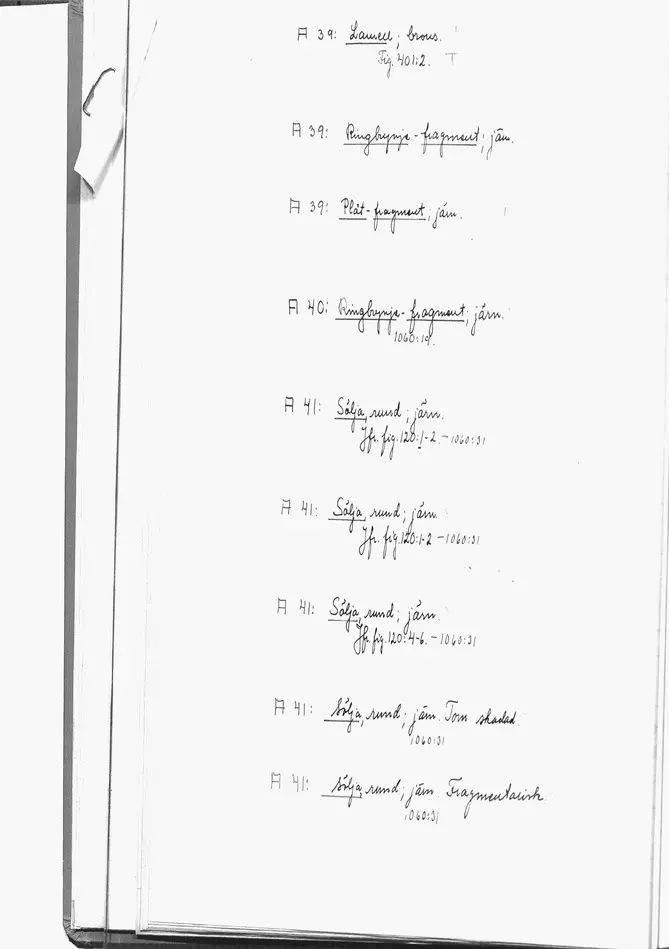 A 39: Lamell; brons.
Fig. 401:2. T
A 39: Ringbrynje-fragment; järn.
A 39: Plåt-fragment; järn.
A 40: Ringbrynje-fragment; järn.
1060:19.
A 41: Sölja, rund; järn.
Jfr. fig. 120:1-2. - 1060:31
A 41: Sölja, rund; järn.
Jfr. fig. 120:1-2 - 1060:31
A 41: Sölja, rund; järn.
Jfr. fig. 120:4-6. - 1060:31
A 41: Sölja, rund; järn. Torn skadad.
1060:31
A 41: Sölja, rund; järn. Fragmentarisk.
1060:31